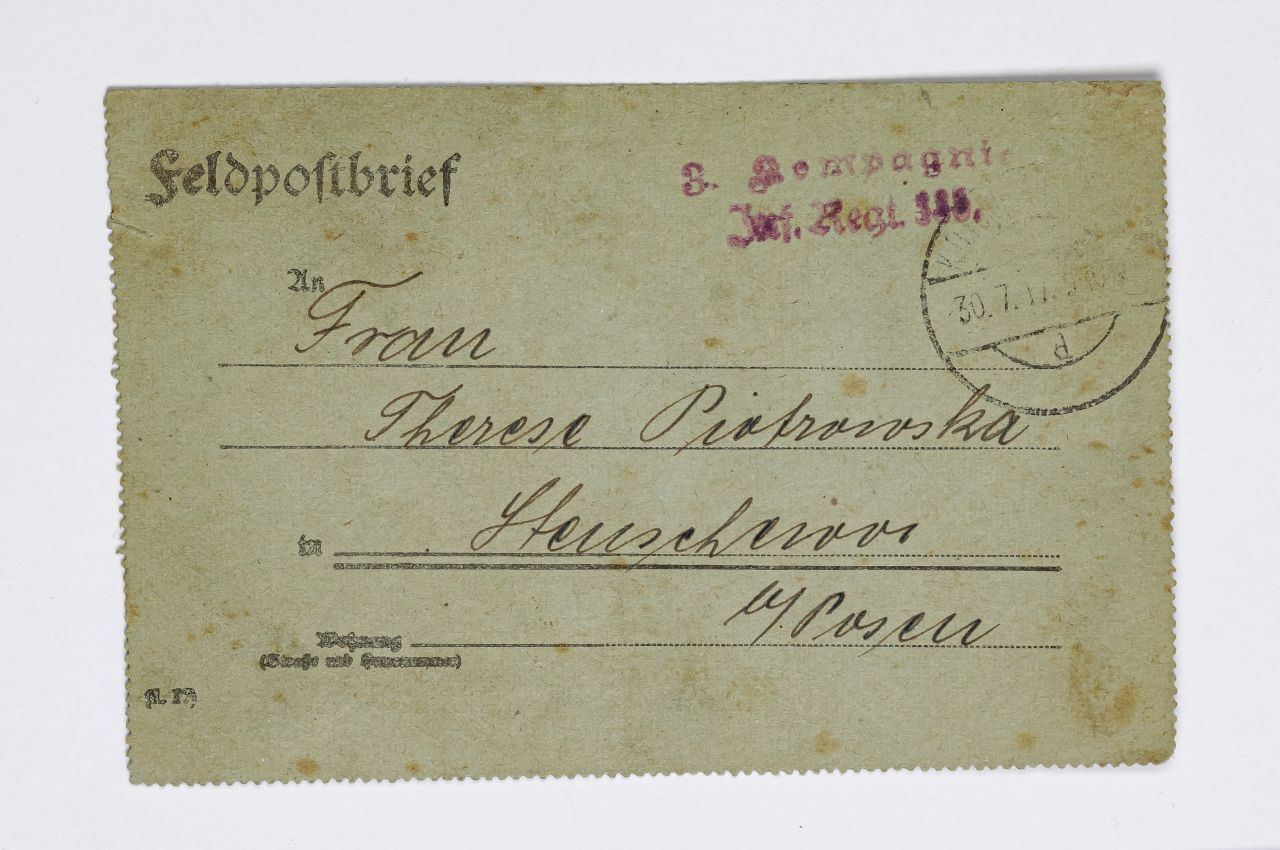 Feldpostbrief
3. Kompagnie
Inf. Regt.
30. 7. 17.
P
An
Frau
Therese Piotrowska
in
b/Posen
Wohnung
(Straße und Hausnummer)